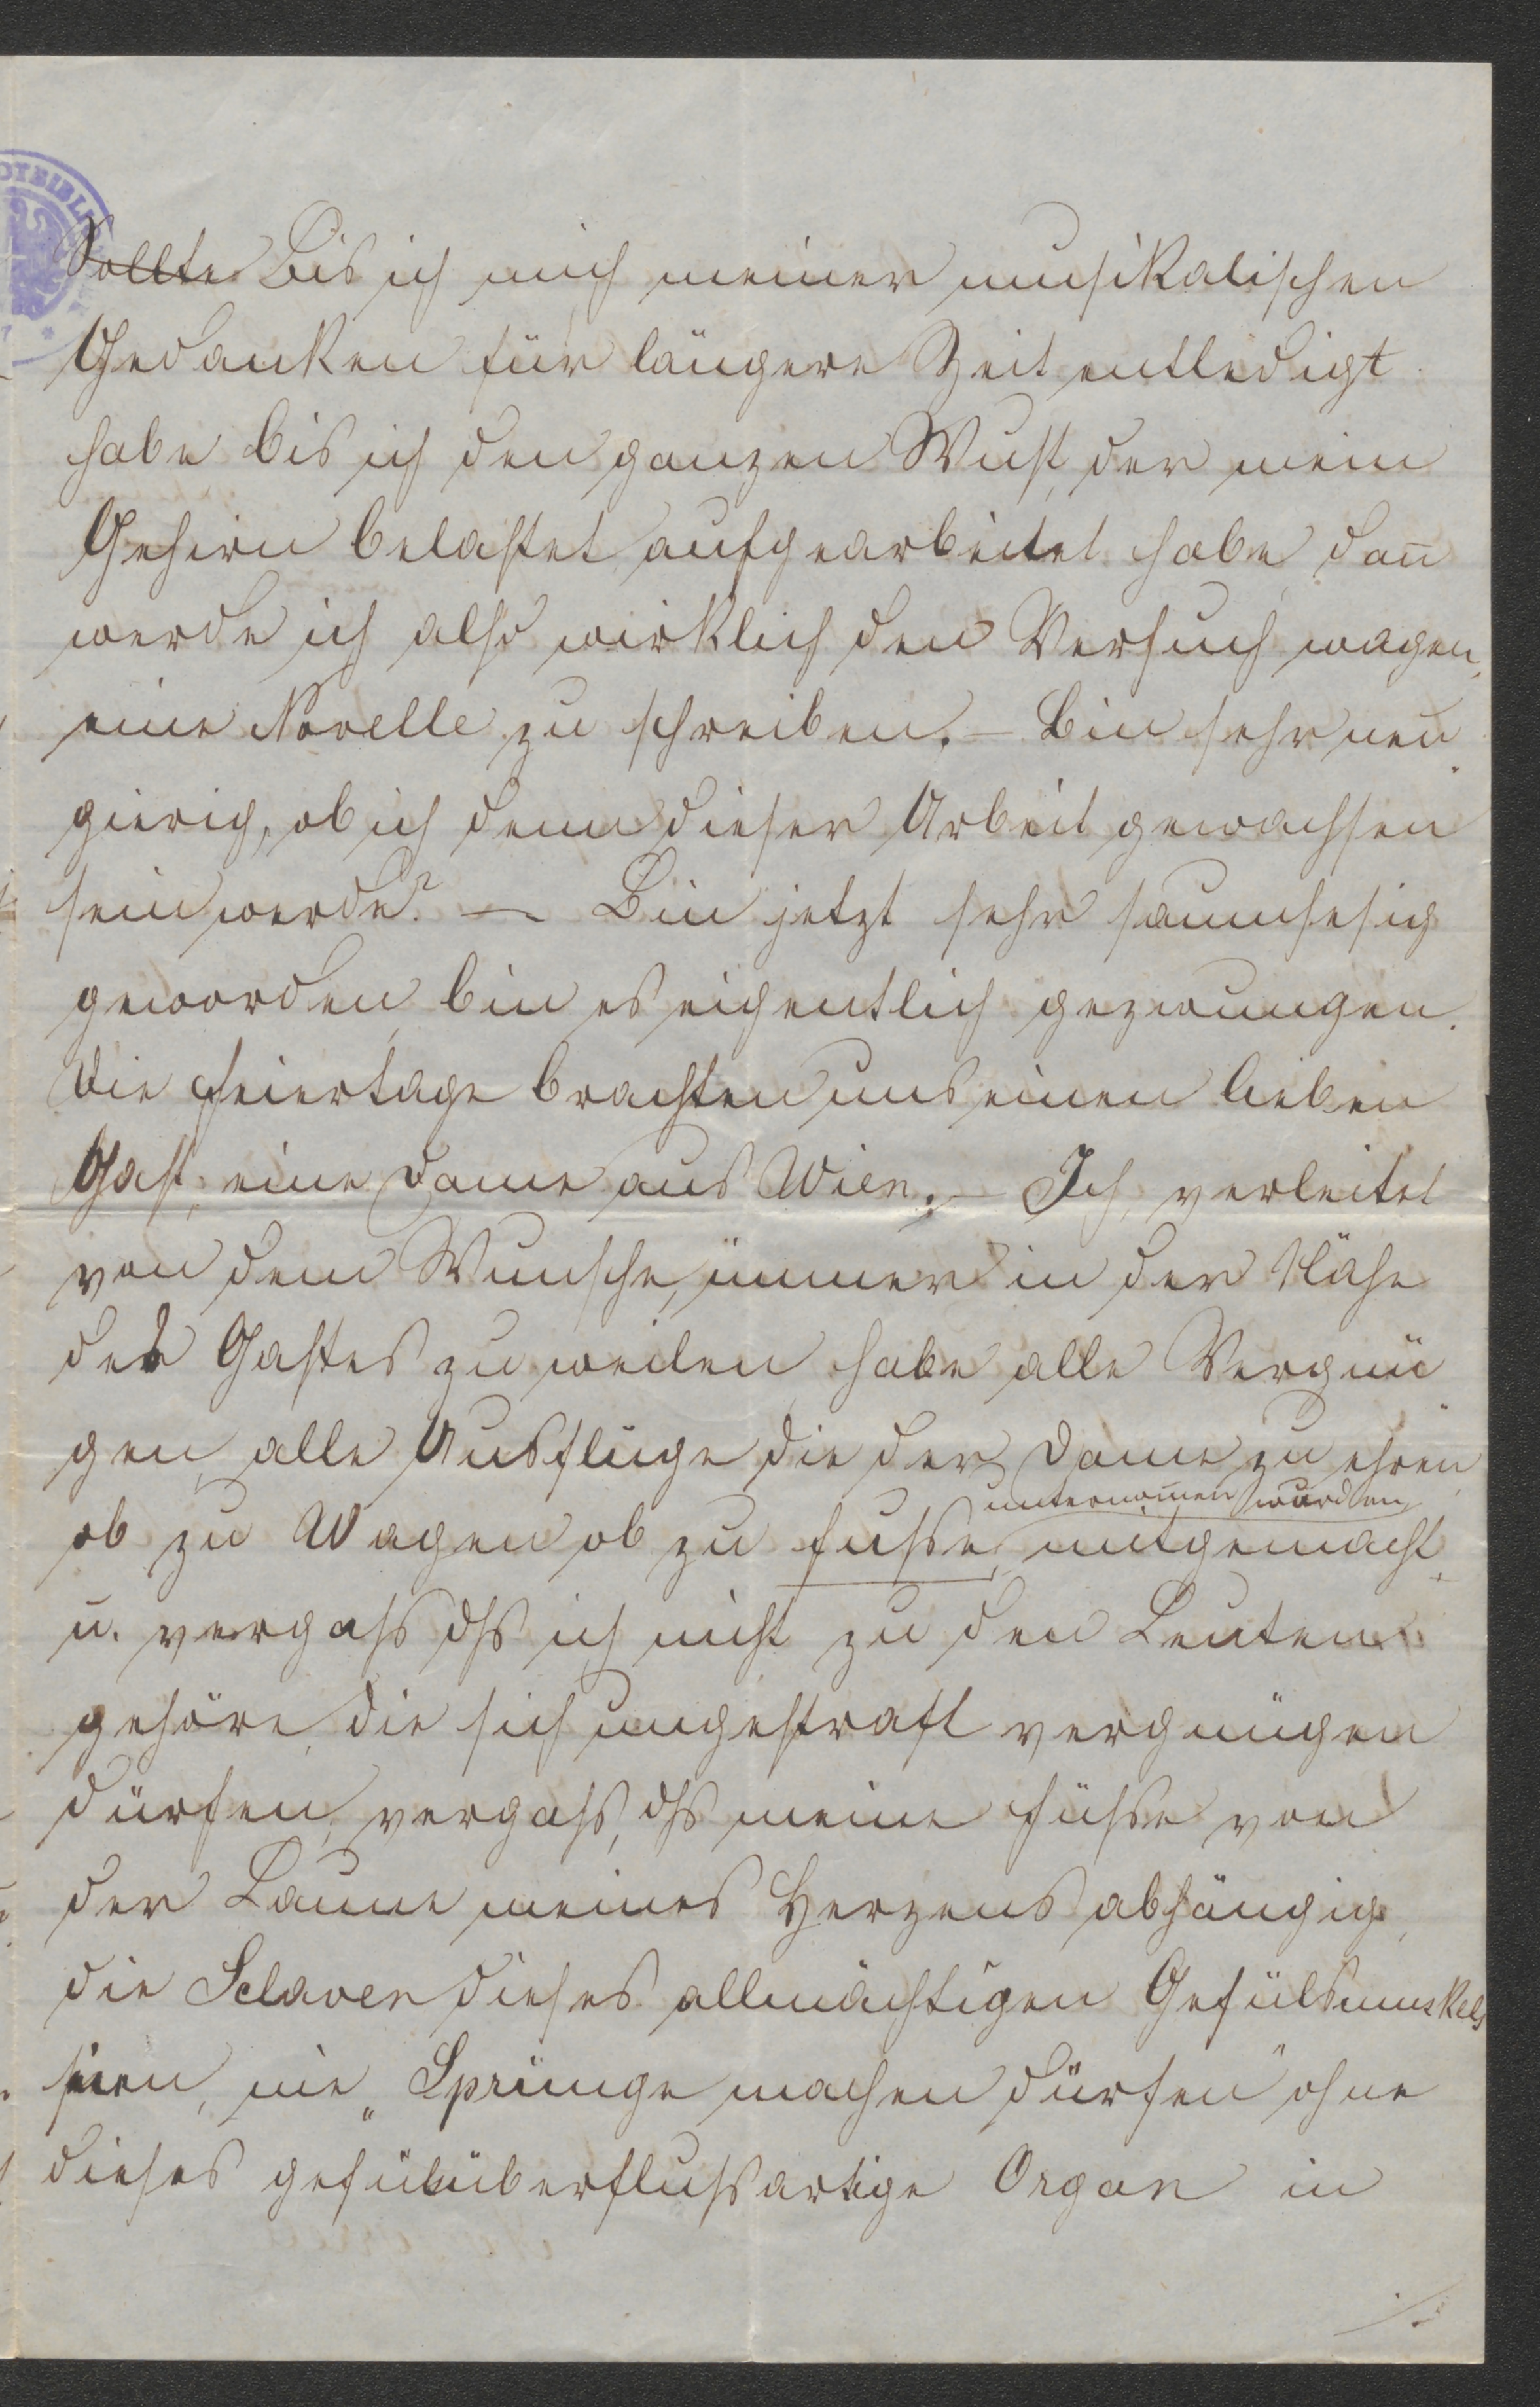 Sollte Bis ich mich meiner musikalischen
Gedanken für längere Zeit entledigt
habe bis ich den ganzen Wust, der mein
Gehirn belastet, aufgearbeitet habe, dan̄
werde ich also wirklich den Versuch wagen,
eine Novelle zu schreiben. – Bin sehr neu
gierig, ob ich denn dieser Arbeit gewachsen
sein werde? – Bin jetzt sehr
geworden, bin es eigentlich gezwungen.
Die Feiertage brachten uns einen lieben
Gast, eine Dame aus Wien. – Ich, verleitet
von dem Wunsche, immer in der Nähe
des Gastes zu weilen habe alle Vergnü
gen, alle Ausflüge die der Dame zu ehren
unternom̄en wurden
ob zu Wagen ob zu Fusse, mitgemacht,
u. vergass dss ich nicht zu den Leuten
gehöre, die sich ungestraft vergnügen
dürfen, vergass, dss meine Füsse von
der Laune meines Herzens abhängig,
die Sclaven dieses allmächtigen Gefülsmuskels
seien, nie „Sprünge machen dürfen" ohne
dieses gefülsüberflussartige Organ in
./.